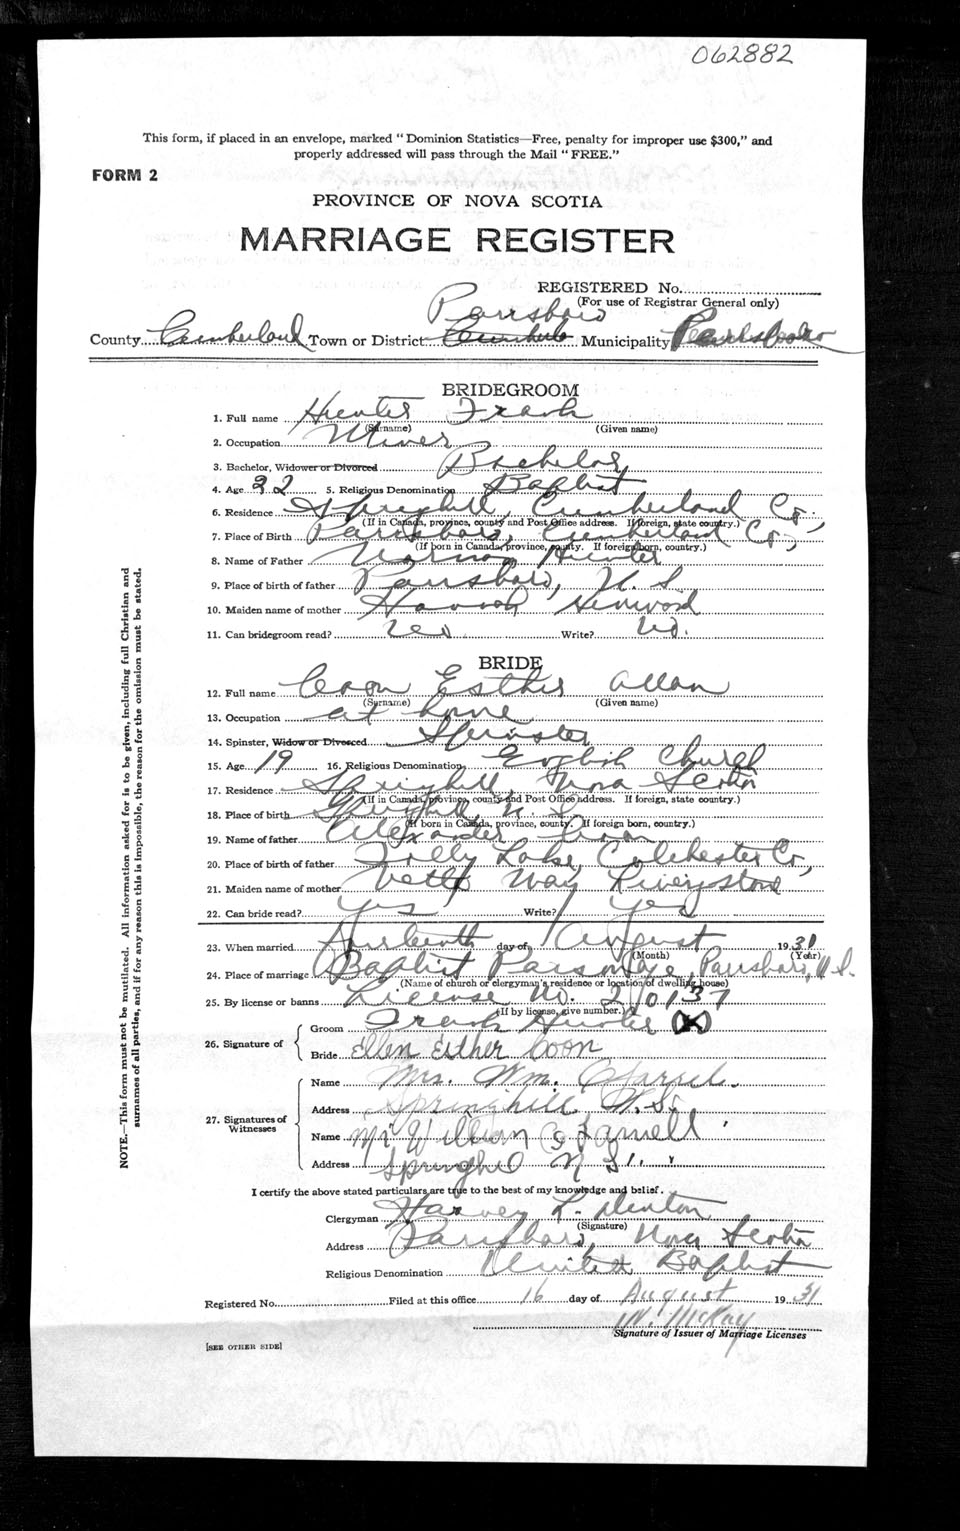 062882
This form, if placed in an envelope, marked "Dominion Statistics—Free, penalty for improper use $300," and
properly addressed will pass through the Mail "FREE."
FORM 2
PROVINCE OF NOVA SCOTIA
MARRIAGE REGISTER
REGISTERED No.
(For use of Registrar General only)
Parrsboro
County Cumberland Town or District Municipality
BRIDEGROOM
1. Full name Hunter Frank
(Surname) (Given name)
2. Occupation Miner
3. Bachelor, Widower or Divorced Bachelor
4. Age 32 5. Religious Denomination Baptist
6. Residence Springhill, Cumberland Co.,
(If in Canada, province, county and Post Office address. If foreign, state country.)
7. Place of Birth Parrsboro, Cumberland Co.,
(If born in Canada, province, county. If foreign born, country.)
8. Name of Father Hunter
9. Place of birth of father Parrsboro, N. S.
10. Maiden name of mother Hannah
11. Can bridegroom read? Write? No.
BRIDE
12. Full name Coon Esther Allan
(Surname) (Given name)
13. Occupation at home
14. Spinster, Widow or Divorced Spinster
15. Age 19 16. Religious Denomination English Church
17. Residence Springhill, Nova Scotia
(If in Canada, province, county and Post Office address. If foreign, state country.)
18. Place of birth Springhill, N. S.
(If born in Canada, province, county. If foreign born, country.)
19. Name of father Alexander Coon
20. Place of birth of father Folly Lake, Colchester Co.,
21. Maiden name of mother May Livingstone
22. Can bride read? Yes Write? Yes
23. When married day of August 1931
(Month) (Year)
24. Place of marriage Baptist Parsonage, Parrsboro, N.S.
(Name of church or clergyman's residence or location of dwelling house)
25. By license or banns License No. 20137
(If by license, give number.)
26. Signature of
Groom Frank Hunter (X)
Bride Ellen Esther Coon
27. Signatures of
Witnesses
Name Mrs. Wm.
Address Springhill N.S.
Name Mr William
Address Springhill N S
I certify the above stated particulars are true to the best of my knowledge and belief.
Clergyman Harvey L. Denton
(Signature)
Address Parrsboro, Nova Scotia
Religious Denomination United Baptist
Registered No. Filed at this office 16 day of August 1931
McKay
Signature of Issuer of Marriage Licenses
[SEE OTHER SIDE]
NOTE.—This form must not be mutilated. All information asked for is to be given, including full Christian and
surnames of all parties, and if for any reason this is impossible, the reason for the omission must be stated.